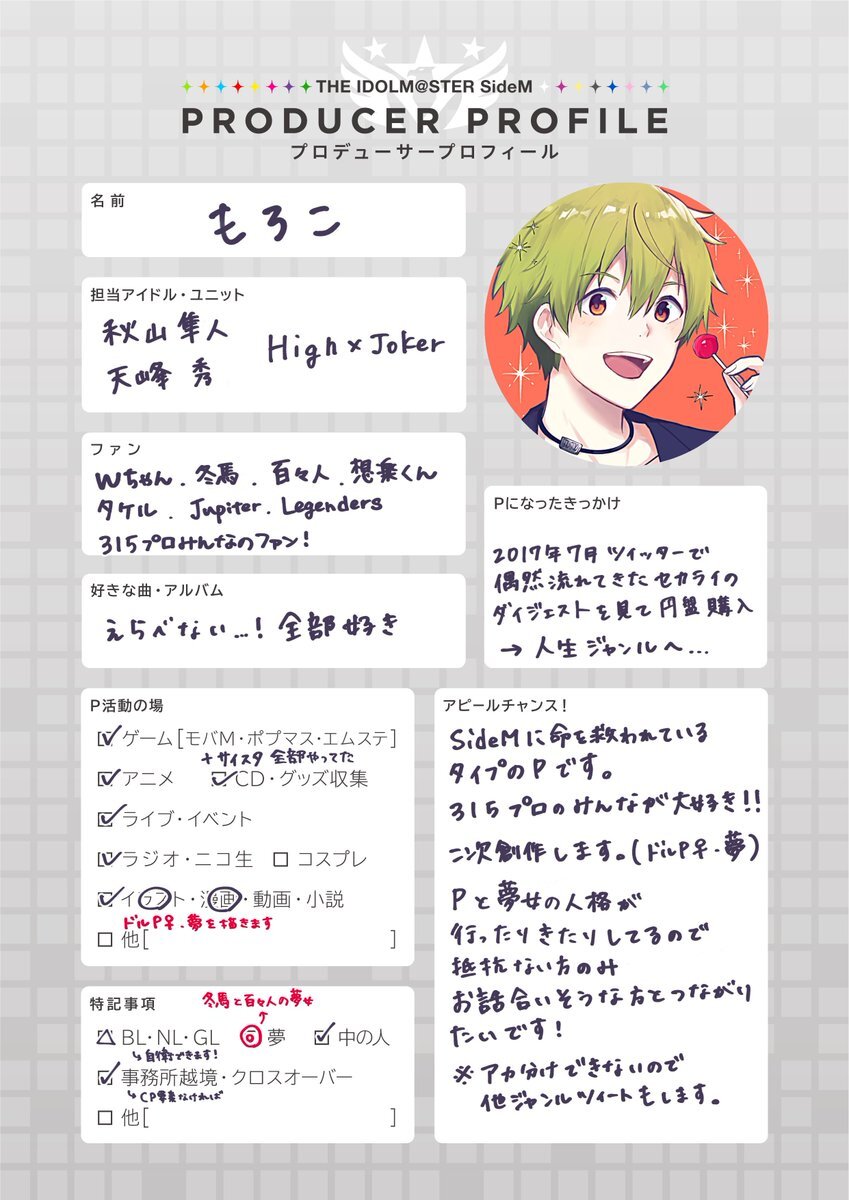 THE IDOLM@STER SideM
PRODUCER PROFILE
プロデューサープロフィール
名前
もろこ
担当アイドル・ユニット
秋山隼人
天峰 秀
High×Joker
ファン
Wちゃん.冬馬.百々人.想楽くん
タケル.Jupiter.Legenders
315プロみんなのファン!
好きな曲・アルバム
えらべない…! 全部好き
Pになったきっかけ
2017年7月ツイッターで
偶然流れてきたセカライの
ダイジェストを見て円盤購入
→ 人生ジャンルへ…
P活動の場
ゲーム[モバM・ポプマス・エムステ]
+サイスタ 全部やってた
アニメ CD・グッズ収集
ライブ・イベント
ラジオ・ニコ生 コスプレ
イラスト・漫画・動画・小説
ドルP♀.夢を描きます
他[ ]
特記事項
冬馬と百々人の夢女
BL・NL・GL 夢 中の人
自衛できます!
事務所越境・クロスオーバー
CP要素なければ
他[ ]
アピールチャンス!
SideMに命を救われている
タイプのPです。
315プロのみんなが大好き!!
二次創作します。(ドルP♀.夢)
Pと夢女の人格が
行ったりきたりしてるので
抵抗ない方のみ
お話合いそうな方とつながり
たいです!
※アカ分けできないので
他ジャンルツイートもします。